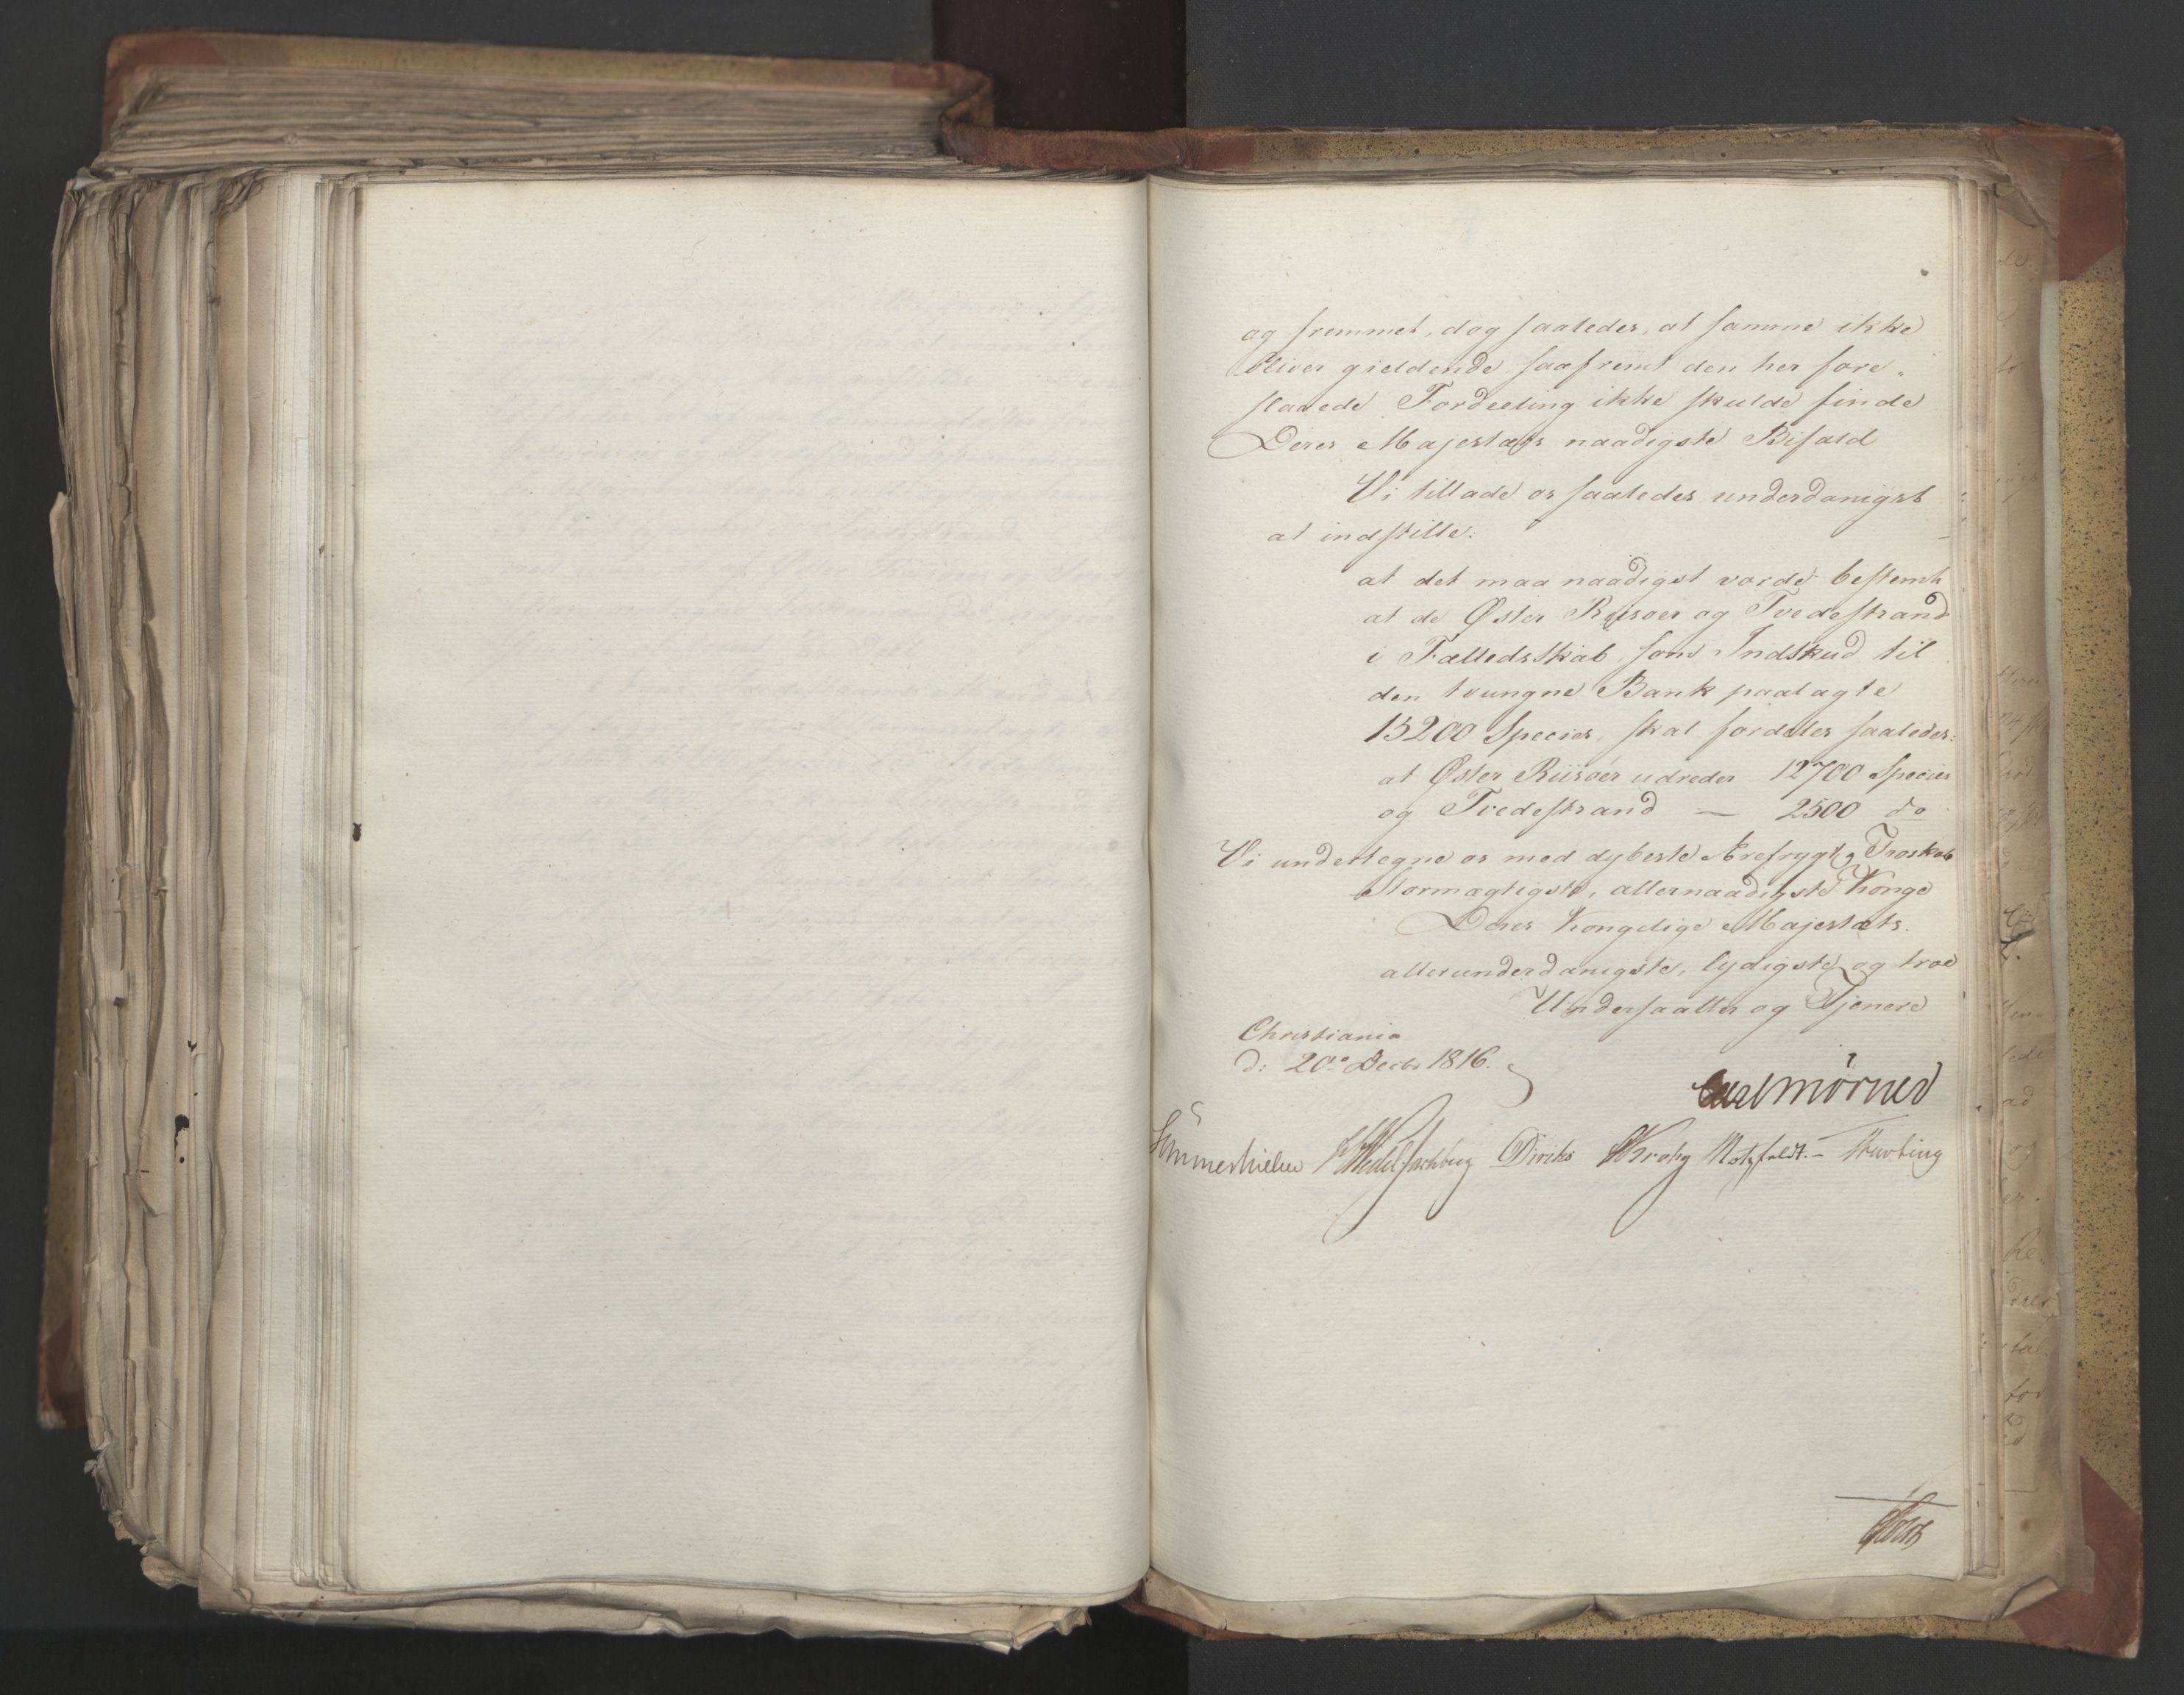 og fremmet, dog saaledes, at samme ikke
bliver gieldende saafremt den her fore-
slaaede Fordeeling ikke skulde finde
Deres Majestæts naadigste Bifald
Vi tillade os saaledes underdanigst
at indstille:
at det maa naadigst vorde bestemt
at de Øster Riisøer og Tvedestrand
i Fælledsskab, som Indskud til
den tvungne Bank paalagte
15200 Species, skal fordeles saaledes:
at Øster Riisøer udreder 12700 Species
og Tvedestrand — 2500 do
Vi undertegne os med dybeste Ærefrygt og Troskab
Stormægtigste, allernaadigste Konge
Deres Kongelige Majestæts.
allerunderdanigste, lydigste og troe
Undersaatter og Tjenere
Christiania
d: 20de Decbr 1816.
Carl Mörner
Sommerhielm Wedel Jarlsberg Diriks Krohg Motzfeldt.—